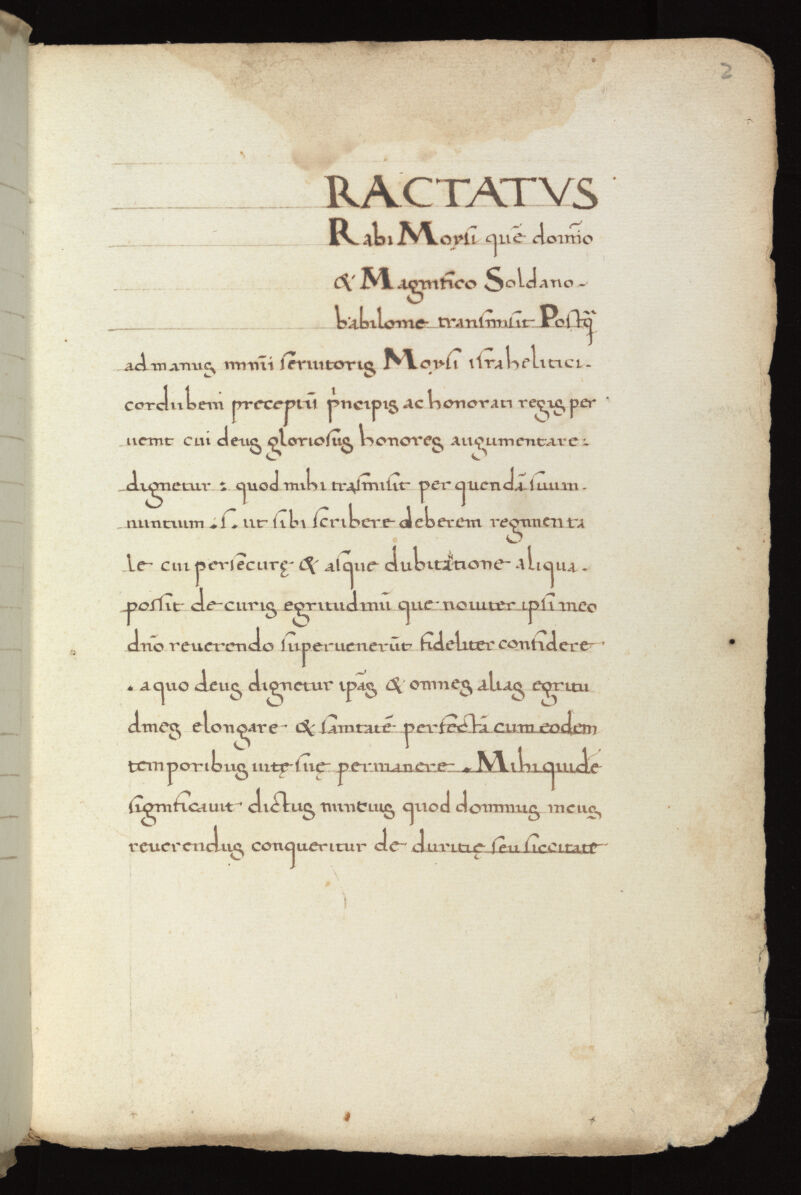 2
RACTATVS
Rabi Moysi quē domīo
& Magnifico Soldano
babilonie transmisit Postq̄
ad manus minimi servitoris Moysi israhelitici.
cordubeni preceptū prīncipis ac honorati regis per
uenit cui deus gloriosus honores augumentare
dignetur : quod mihi trāsmisit per quendā suum.
nuntium .s. ut sibi scribere deberem regimenta
le cui persecurę & absque dubitatione aliqua.
possit de curis egritudinū que nouiter ipsi meo
dño reuerendo superuenerūt fideliter considere
. a quo deus dignetur ipās & omnes alias egritu
dines elongare & sanitatē perfectā cum eodem
temporibus uitę suę permanere . Mihi quidē
significauit dictus nuntius quod dominus meus
reuerendus conqueritur de duritię seu siccitate